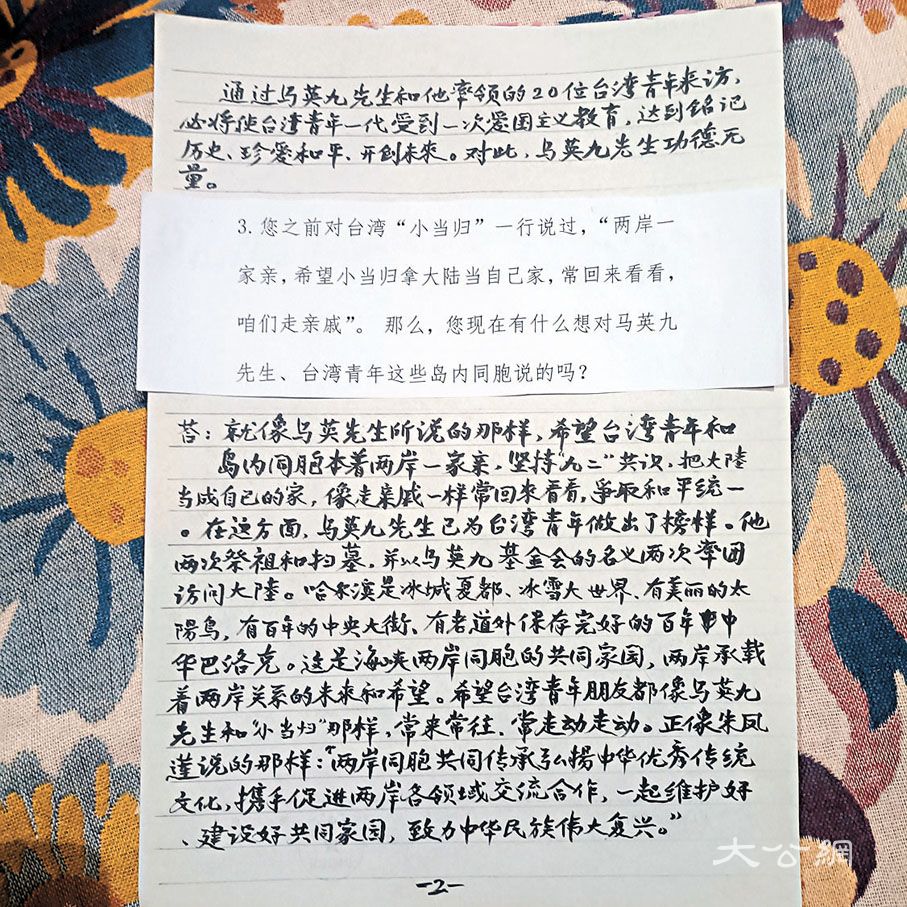 通过马英九先生和他率领的20位台湾青年来访，
必将使台湾青年一代受到一次爱国主义教育，达到铭记
历史、珍爱和平、开创未来。对此，马英九先生功德无
量。
3. 您之前对台湾“小当归”一行说过，“两岸一
家亲，希望小当归拿大陆当自己家，常回来看看，
咱们走亲戚”。 那么，您现在有什么想对马英九
先生、台湾青年这些岛内同胞说的吗？
答：就像马英先生所说的那样，希望台湾青年和
岛内同胞本着两岸一家亲，坚持“九二”共识，把大陸
当成自己的家，像走亲戚一样常回来看看，争取和平统一
。在这方面，马英九先生已为台湾青年做出了榜样。他
两次祭祖和扫墓，并以马英九基金会的名义两次率团
访问大陸。哈尔滨是冰城夏都、冰雪大世界、有美丽的太
陽鸟，有百年的中央大街、有老道外保存完好的百年中
华巴洛克。这是海峡两岸同胞的共同家园，两岸承载
着两岸关系的未来和希望。希望台湾青年朋友都像马英九
先生和“小当归”那样，常来常往、常走动走动。正像朱凤
莲说的那样：“两岸同胞共同传承弘揚中华优秀传统
文化，攜手促進两岸各领域交流合作，一起维护好
、建设好共同家园，致力中华民族伟大复兴。”
-2-
大公網